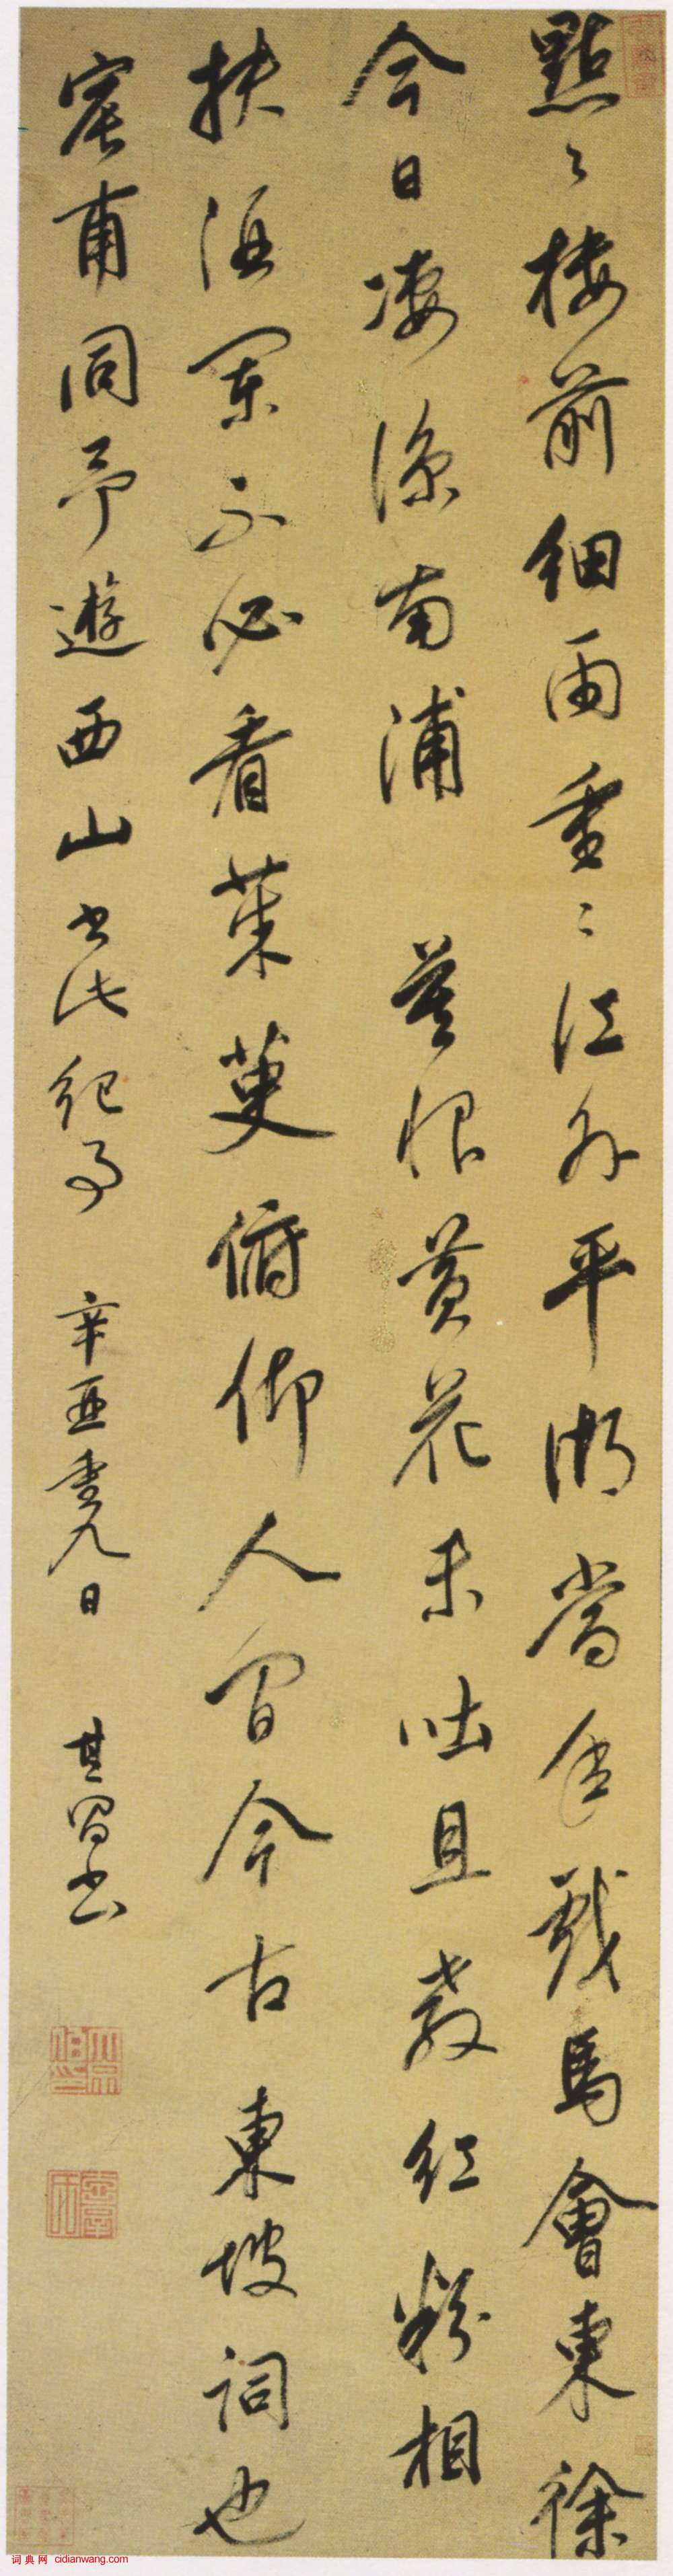 點〻樓前細雨重〻江外平湖當年戲馬會東徐
今日凄涼南浦 莫恨黃花未吐且教紅粉相
扶酒闌不必看茱萸俯仰人間今古東坡詞也
宸甫同予遊西山書此紀事 辛亥重九日 其昌書
词典网 cidianwang.com